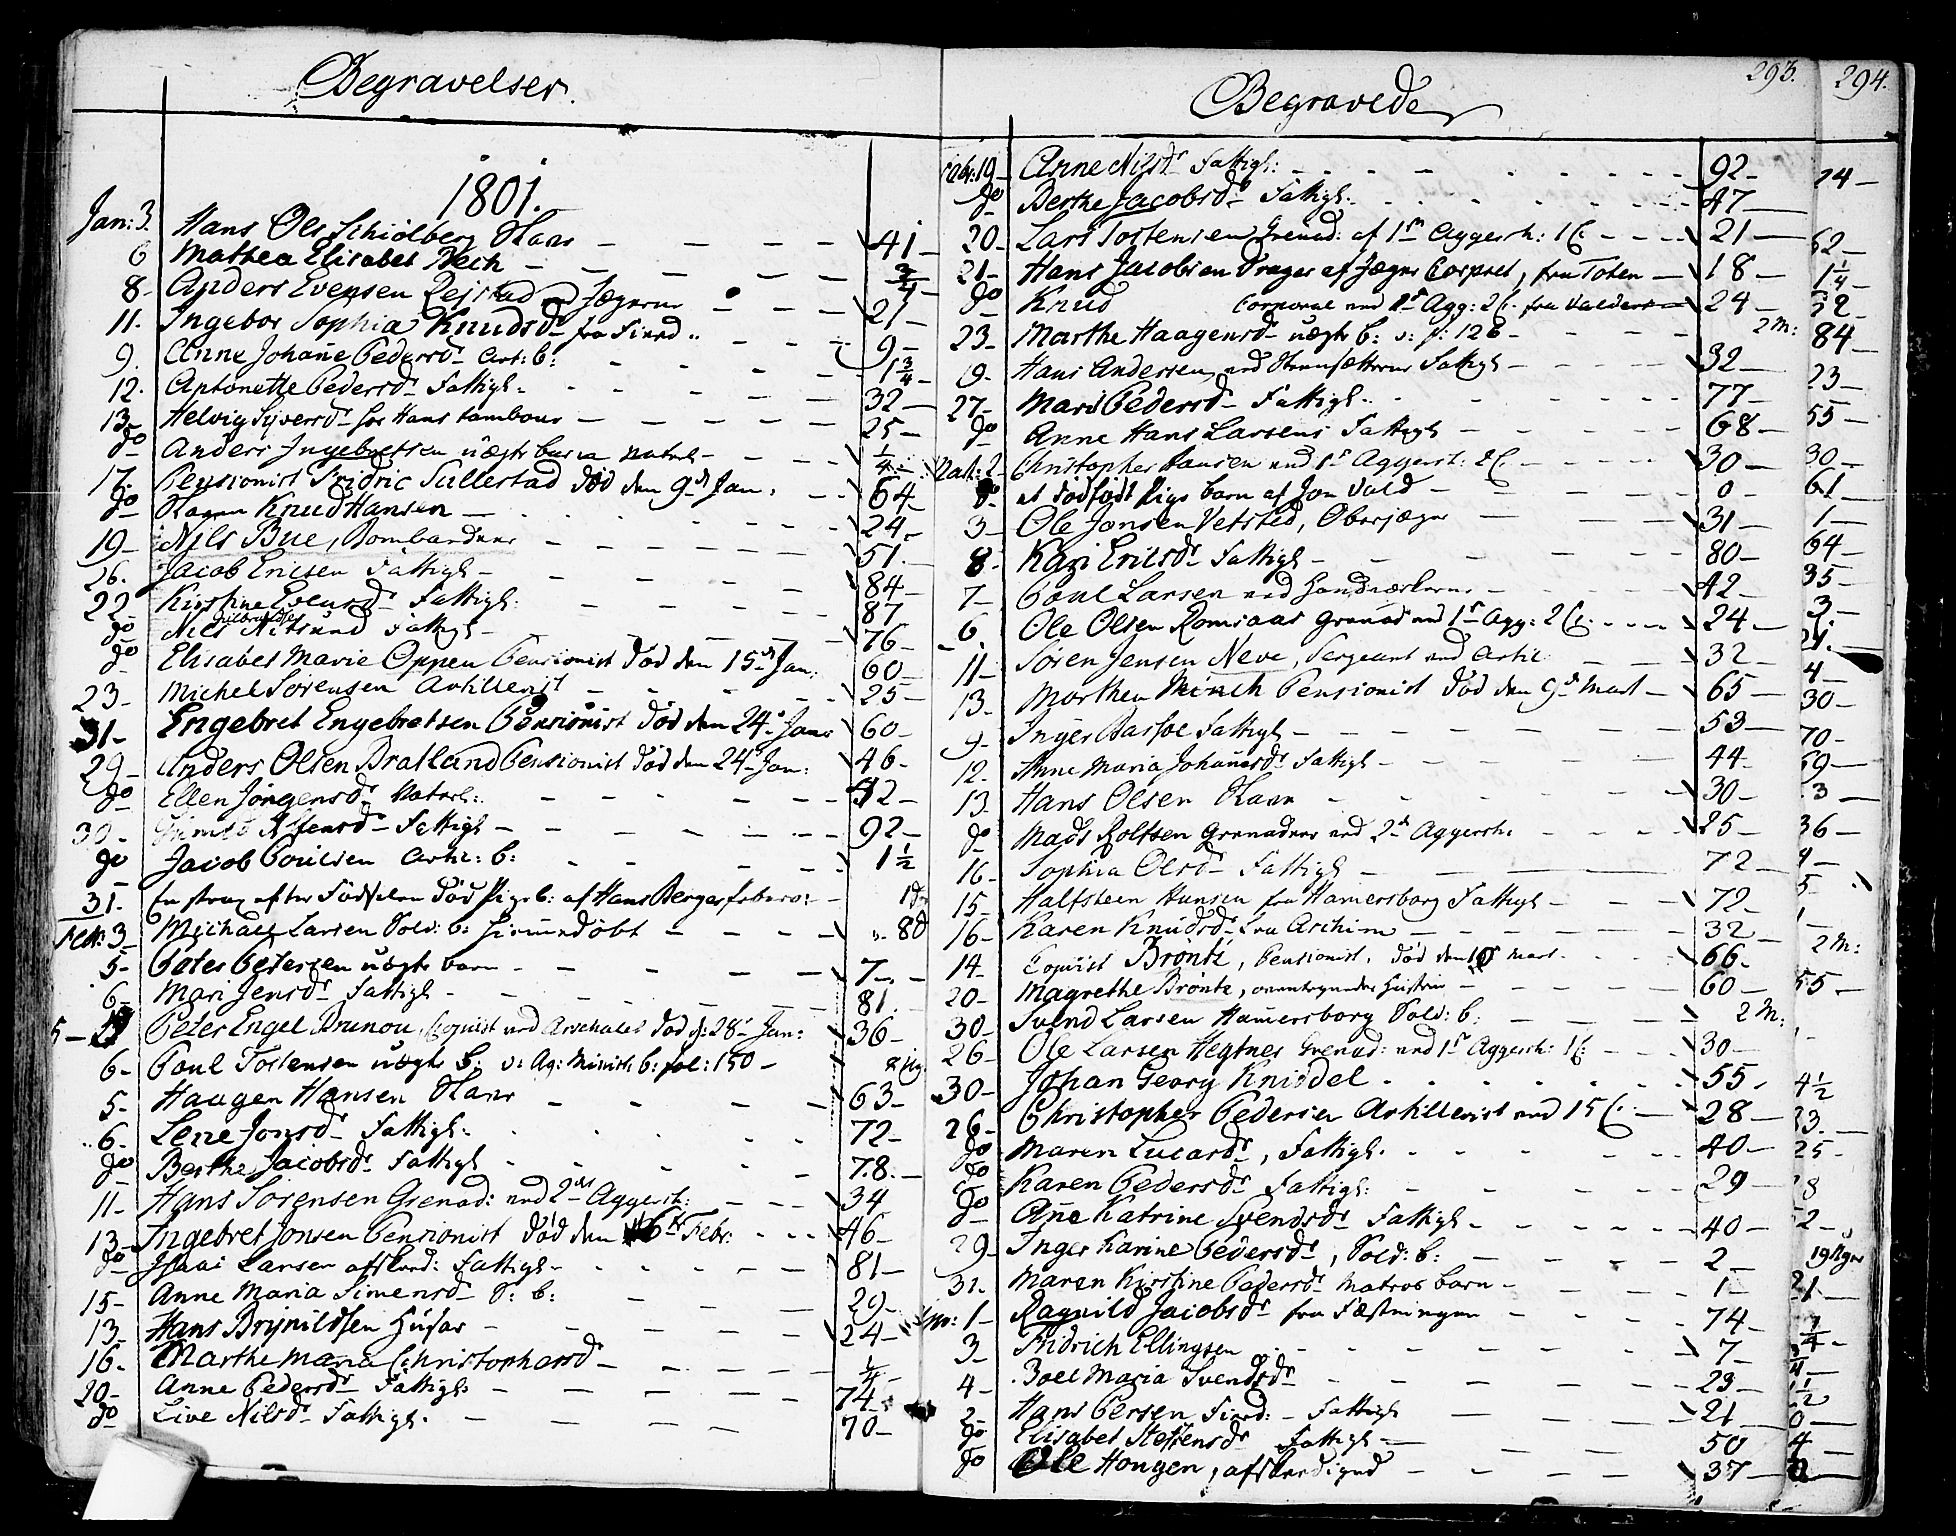 Begravelser.
1801.
Jan: 3. Hans Ols Schiolberg Slave 41
6 Mattea Elisabet Pech 3/4
8 Anders Evensen Rejstad Jægerne 21
11. Ingebor Sophia Knudsd. fra Fierd 9
9. Anne Johane Pedersd. Art: b: 1 3/4
12. Antonette Pedersd. Fattigl. 32
13 Helvig Syversd. hos Hans tambour 25
do Anders Ingebretsen uægte barn Natvel 1/4
17. Pensionist Fridric Sullestad død den 9d Jan. 64
do Slaven Knud Hansen 24
19 Nils Bue, Bombardeer 51
26. Jacob Ericsen Fattigl 84
22 Kirstine Evensd. Fattigl. 87
do Nils Nitsund Fattigl 76
do Elisabet Marie Oppen Pensionist død den 15d Jan: 60
23 Michel Sørensen Artillerist 25
31 Engebret Engebretsen Pensionist død den 24d Jan 60
29 Anders Olsen Bratland Pensionist død den 24d Jan: 46
do Ellen Jørgensd. Natvel: 32
30 Alfensd. Fattigl 92
do Jacob Poulsen Artil: b: 1 1/2
31. En strax efter Fødselen død Pige b: af Hans Berger 1d
Febr: 3 Michael Larsen Sold: b: hiemmedøbt 8d
5 Peter Petersen uægte barn 7
6 Mari Jensd. Fattigl 81
5 Peter Engel Brunou, Copiist ved Arsenalet død d: 28d Jan: 36
6 Poul Tostensen uægte b. v: Ag: Minist: b: fol: 150
5 Haagen Hansen Slave 63
6 Lene Jonsd. Fattigl. 72
do Berthe Jacobsd. Fattigl 78
11 Hans Sørensen Grenad: ved 2det Aggersh: 34
13 Ingebret Jonsen Pensionist død den 6te Febr: 46
do Isaac Larsen afskeed: Fattigl 81
15 Anne Maria Simensd. S: b: 29
13 Hans Brynildsen Husar 24
16. Marthe Maria Christophersd. 1/4
20 Anne Pedersd. Fattigl. 74
do Live Nilsd. Fattigl. 70
Begravede
293.
Febr: 19 Anne Nilsd. Fattigl: 92
do Berthe Jacobsd. Fattigl. 47
20 Lars Tostensen Grenad: af 1ste Aggersh: 1 C. 21
21 Hans Jacobsen Drager af Jæger Corpset, fra Toten 18
do Knud Corporal ved 1ste Agg: 2 C. fra Valders 24
23 Marthe Haagensd. uægte b: v: p: 126 2 M:
19. Hans Andersen, ved Fattigl 32
27 Mari Pedersd. Fattigl. 77
do Anne Hans Larsens Fattigl 68
Mart: 2 Christopher Hansen ved 1ste Aggersh: 2 C. 30
do et dødfødt Pige barn af Jon Vold 0
3 Ole Jonsen Vetsted, Oberjæger 31
8 Kari Ericsd. Fattigl 80
7 Poul Larsen ved Landværnet 42
6 Ole Olsen Romsaas Grenad ved 1ste Agg: 2 C. 24
11 Sören Jensen Neve, Sergeant ved Artil 32
13 Morthen Minck Pensionist død den 9d Mart 65
9 Inger Bassoe Fattigl 53
12. Anne Maria Johannesd. Fattigl 44
13 Hans Olsen Slave 30
do Mads Rolfsen Grenadeer ved 2det Aggersh. 25
16 Sophia Olsd. Fattigl 72
15 Halfsteen Hansen fra Hamersborg Fattigl 72
16 Karen Knudsd. 32
14 Copiist Brønte, Pensionist, død den 10 Mart 66
20 Magrethe Brønte, ovenbemeldte Hustru 60
30 Svend Larsen Hamersborg Sold: b: 2 M:
26 Ole Larsen Hegtnes Grenad: ved 1ste Aggersh: 1 C: 30
30 Johan Georg Kniddel 55
26 Christopher Pedersen Artillerist ved 15 C. 28
do Maren Lucasd., Fattigl. 40
do Karen Pedersd. Fattigl: 29
do Ane Katrine Svendsd. Fattigl 40
29 Inger Karine Pedersd., Sold: b: 2
31. Maren Kirstine Pedersd. Matros barn 1
Apr: 1 Ragnild Jacobsd. fra Fæstningen 74
3 Fridrich Ellingsen 7
4 Boel Maria Svendsd. 23
2 Hans Persen Fierd: Fattigl 21
do Elisabet Steffensd. Fattigl 50
do Ole Hougen, afskediged 37
294.
24
62
1 1/4
52
84
23
55
30
61
1
64
35
3
21.
4
30
70
69
3
36
4
5
1
2 M:
55
4 1/2
23.
25
52
19 Uger
21
50